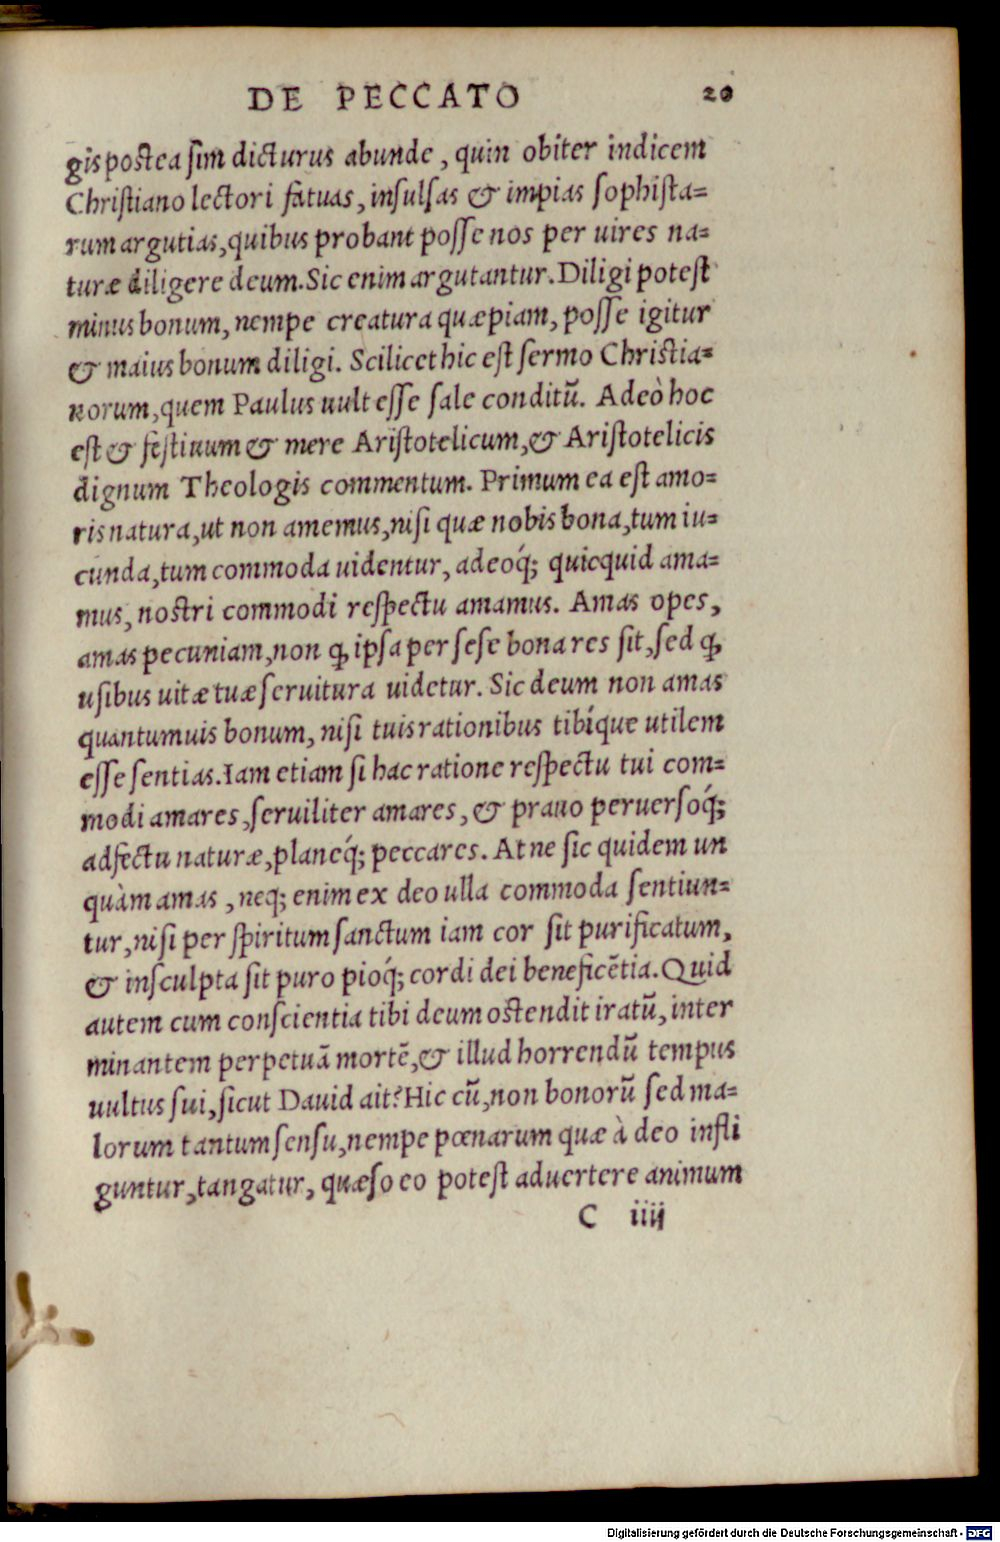 DE PECCATO 20
gis postea sim dicturus abunde, quin obiter indicem
Christiano lectori fatuas, insulsas & impias sophista=
rum argutias, quibus probant posse nos per uires na=
turæ diligere deum. Sic enim argutantur. Diligi potest
minus bonum, nempe creatura quæpiam, posse igitur
& maius bonum diligi. Scilicet hic est sermo Christia=
norum, quem Paulus uult esse sale conditũ. Adeò hoc
est & festiuum & mere Aristotelicum, & Aristotelicis
dignum Theologis commentum. Primum ea est amo=
ris natura, ut non amemus, nisi quæ nobis bona, tum iu=
cunda, tum commoda uidentur, adeóq; quicquid ama=
mus, nostri commodi respectu amamus. Amas opes,
amas pecuniam, non ꝙ ipsa per sese bona res sit, sed ꝙ
usibus uitæ tuæ seruitura uidetur. Sic deum non amas
quantumuis bonum, nisi tuis rationibus tibíque utilem
esse sentias. Iam etiam si hac ratione respectu tui com=
modi amares, seruiliter amares, & prauo peruersoq́;
adfectu naturæ, planeq́; peccares. At ne sic quidem un
quàm amas, neq; enim ex deo ulla commoda sentiun=
tur, nisi per spiritum sanctum iam cor sit purificatum,
& insculpta sit puro pioq́; cordi dei beneficẽtia. Quid
autem cum conscientia tibi deum ostendit iratũ, inter
minantem perpetuã mortẽ, & illud horrendũ tempus
uultus sui, sicut Dauid ait? Hic cũ, non bonorũ sed ma=
lorum tantum sensu, nempe pœnarum quæ à deo infli
guntur, tangatur, quæso eo potest aduertere animum
C iiij
Digitalisierung gefördert durch die Deutsche Forschungsgemeinschaft - DFG